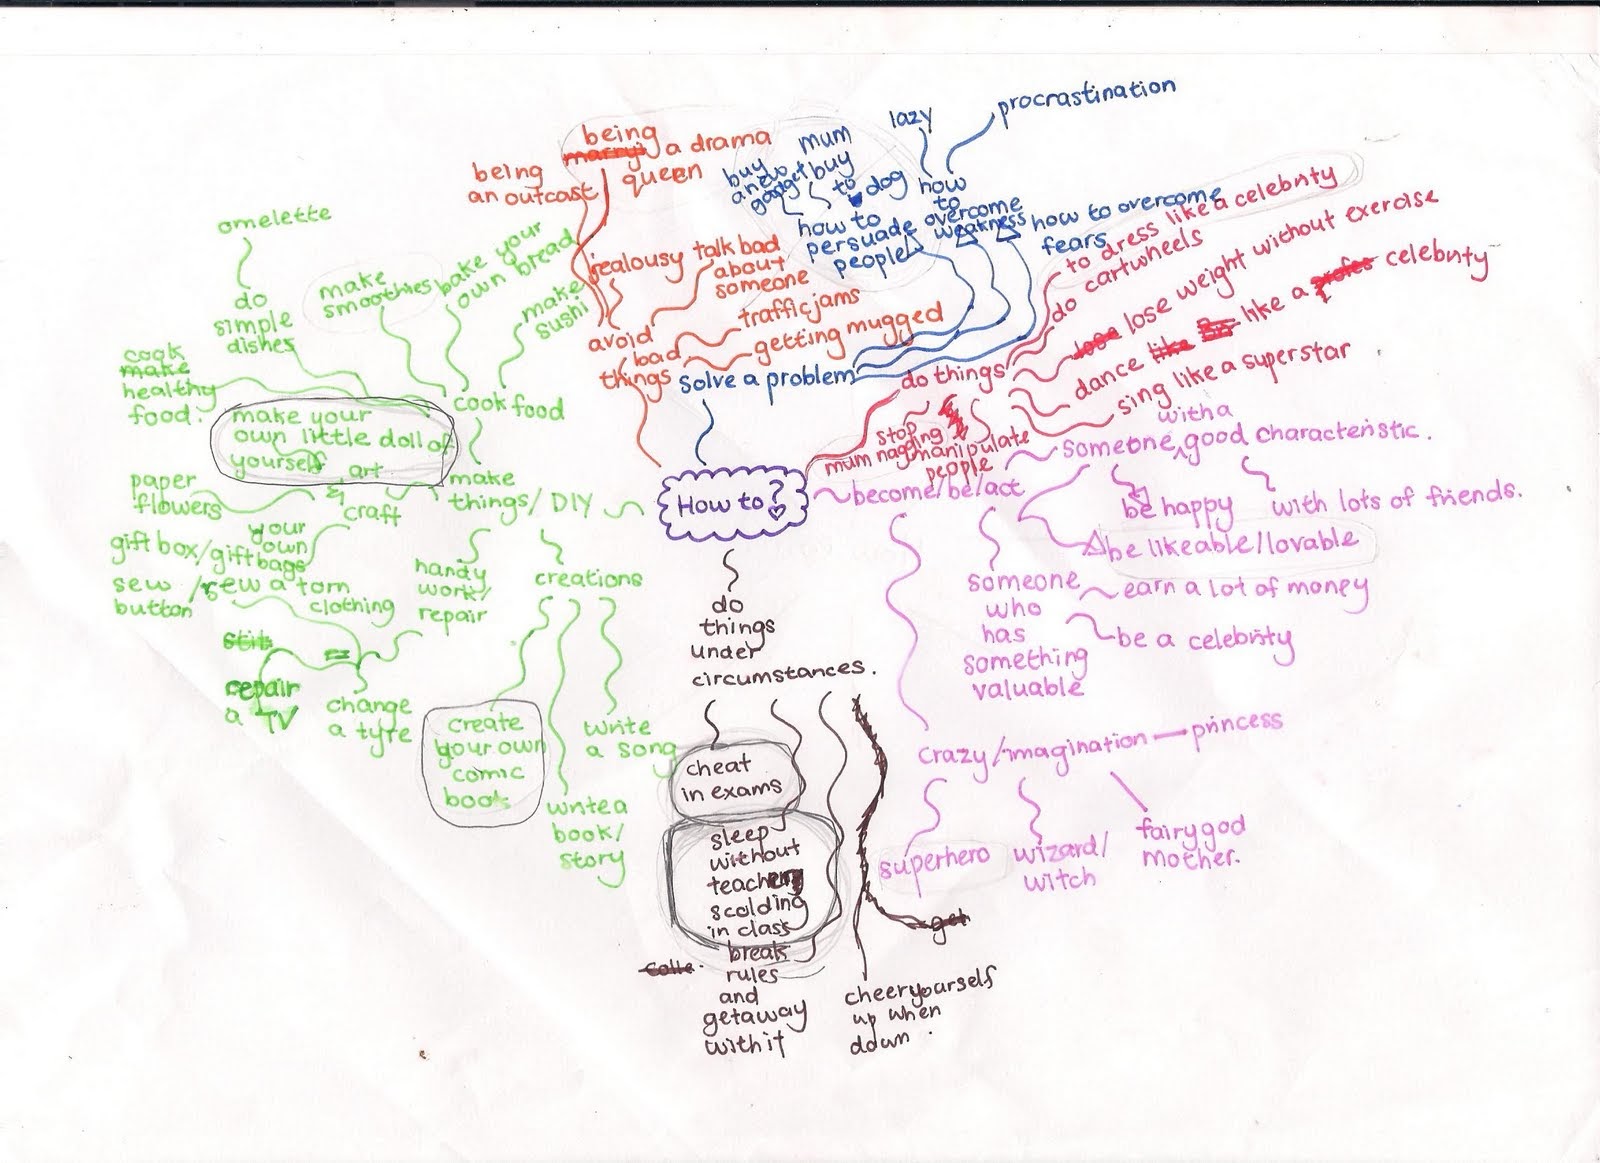 How to?
avoid
bad
things
being
a drama
queen
being
an outcast
jealousy
talk bad
about
someone
traffic jams
getting mugged
solve a problem
how to
persuade
people
buy
a new
gadget
mum
buy
to dog
how
to
overcome
weakness
lazy
procrastination
how to overcome
fears
do things
to dress like a celebrity
do cartwheels
lose weight without exercise
dance like a celebrity
sing like a superstar
manipulate
people
stop
mum nagging
become/be/act
someone with a good characteristic.
be happy
with lots of friends.
be likeable/lovable
someone
who
has
something
valuable
earn a lot of money
be a celebrity
crazy/imagination
princess
superhero
wizard/
witch
fairy god
mother.
do
things
under
circumstances.
cheat
in exams
sleep
without
teachers
scolding
in class
break
rules
and
getaway
with it
cheer yourself
up when
down.
make
things/DIY
cook food
omelette
do
simple
dishes
make
smoothies
bake your
own bread
make
sushi
cook
make
healthy
food.
make your
own little doll of
yourself
art
&
craft
paper
flowers
your
own
gift box/gift bags
handy
work/
repair
sew
button
/sew a torn
clothing
repair
a TV
change
a tyre
creations
create
your own
comic
book
write a
book/
story
write
a song